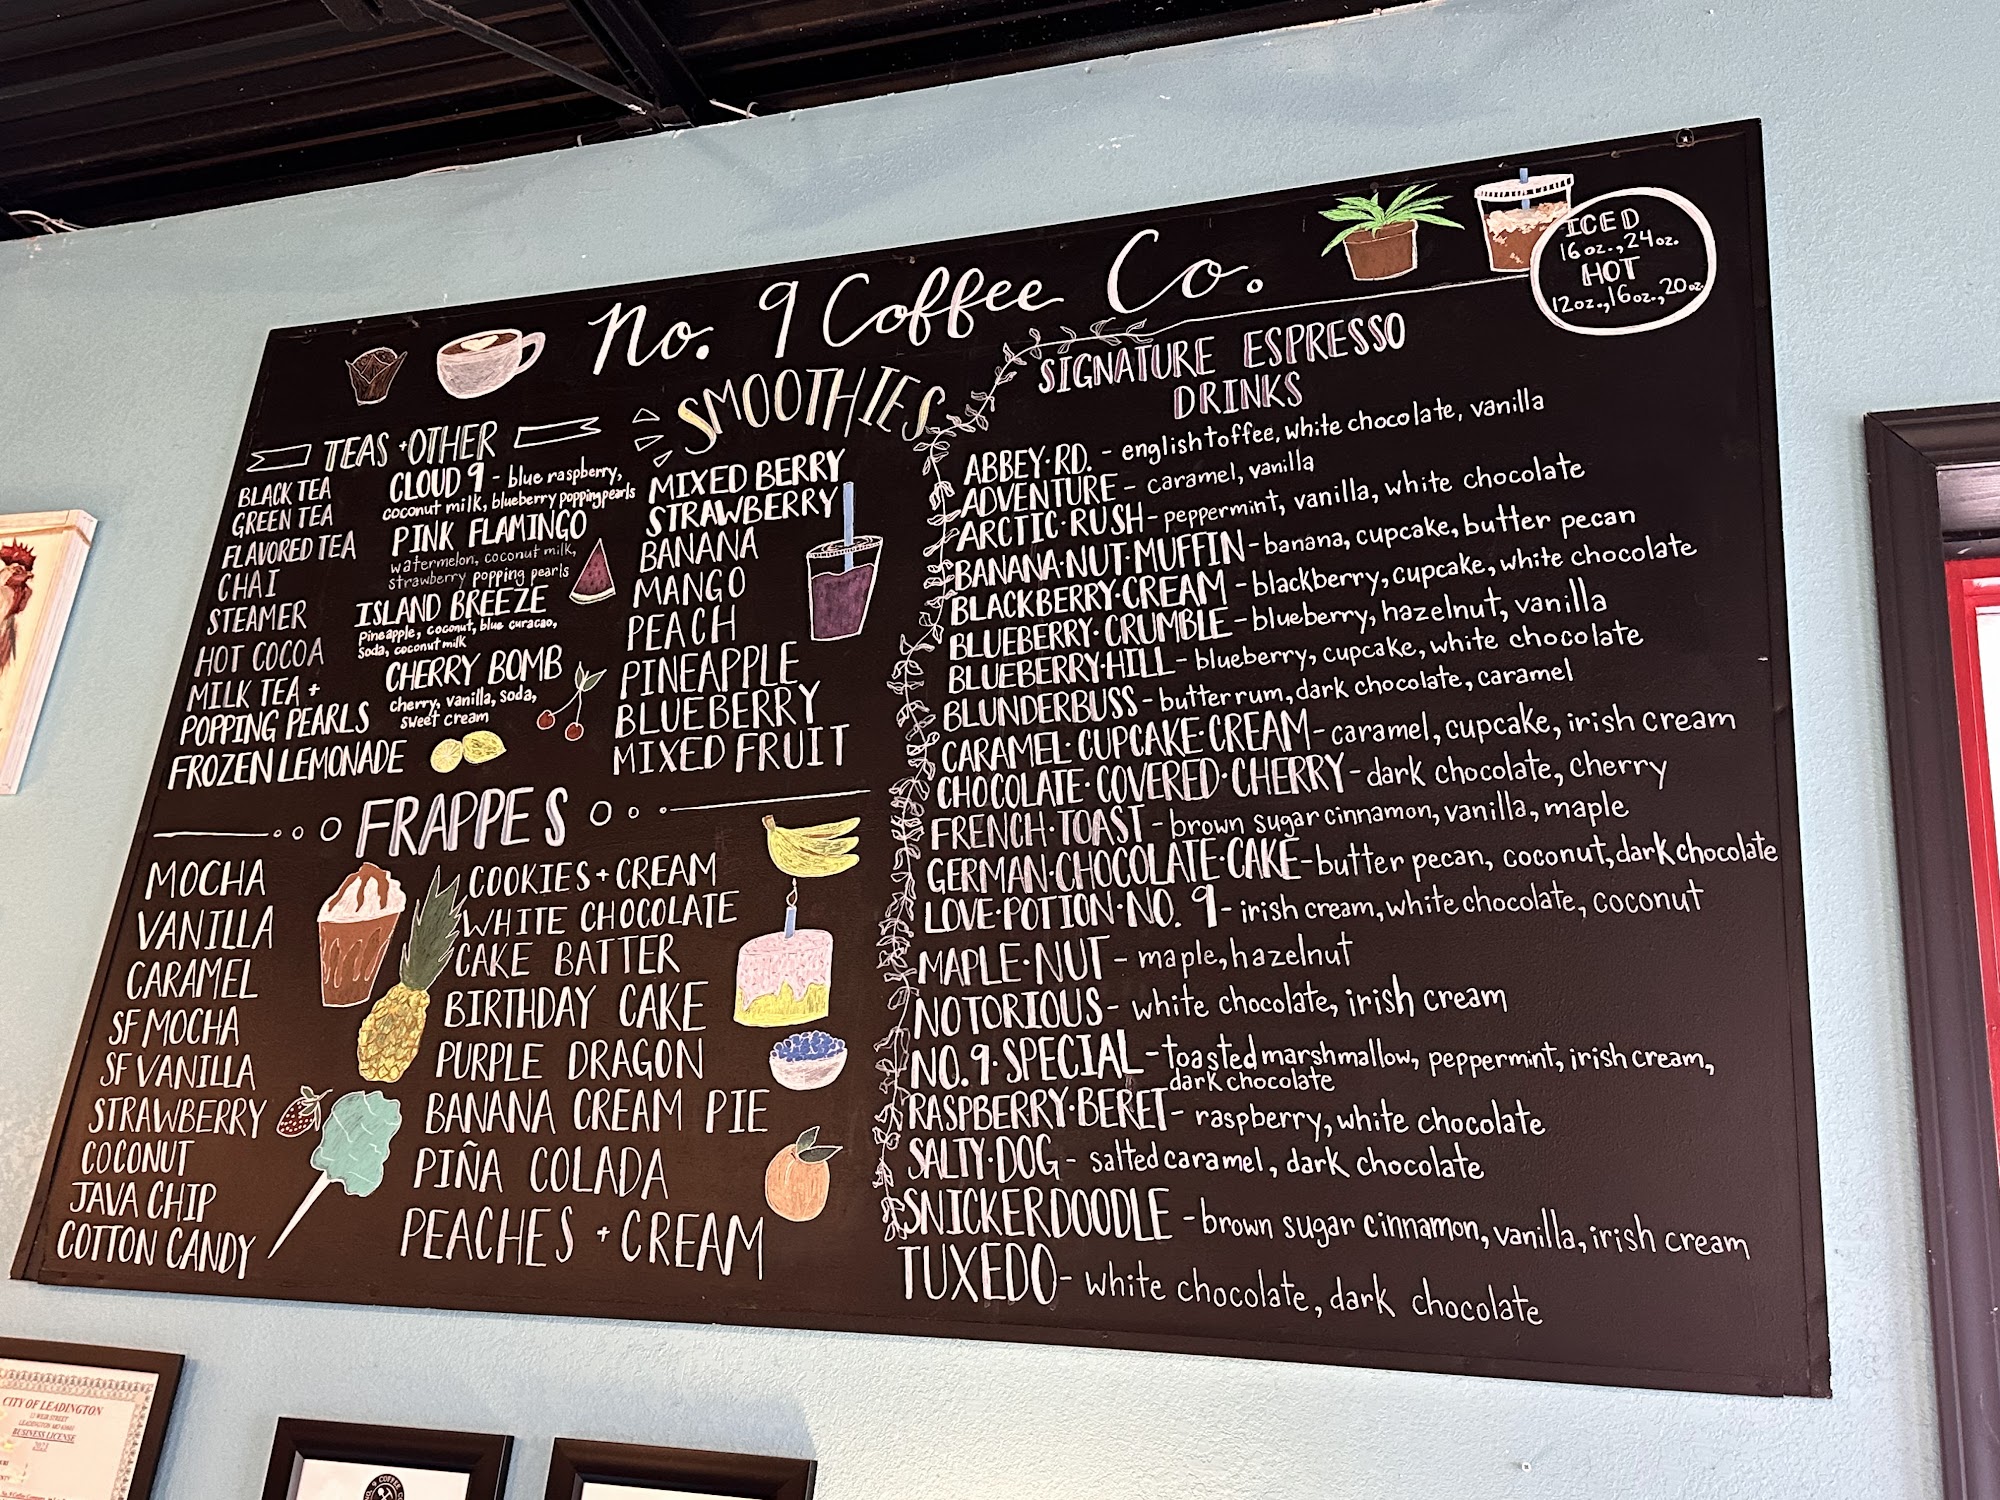 No. 9 Coffee Co.
ICED
16 oz., 24 oz.
HOT
12 oz., 16 oz., 20 oz.
TEAS + OTHER
BLACK TEA
GREEN TEA
FLAVORED TEA
CHAI
STEAMER
HOT COCOA
MILK TEA +
POPPING PEARLS
FROZEN LEMONADE
CLOUD 9 - blue raspberry,
coconut milk, blueberry popping pearls
PINK FLAMINGO
watermelon, coconut milk,
strawberry popping pearls
ISLAND BREEZE
pineapple, coconut, blue curacao,
soda, coconut milk
CHERRY BOMB
cherry, vanilla, soda,
sweet cream
SMOOTHIES
MIXED BERRY
STRAWBERRY
BANANA
MANGO
PEACH
PINEAPPLE
BLUEBERRY
MIXED FRUIT
FRAPPES
MOCHA
VANILLA
CARAMEL
SF MOCHA
SF VANILLA
STRAWBERRY
COCONUT
JAVA CHIP
COTTON CANDY
COOKIES + CREAM
WHITE CHOCOLATE
CAKE BATTER
BIRTHDAY CAKE
PURPLE DRAGON
BANANA CREAM PIE
PIÑA COLADA
PEACHES + CREAM
SIGNATURE ESPRESSO
DRINKS
ABBEY·RD. - english toffee, white chocolate, vanilla
ADVENTURE - caramel, vanilla
ARCTIC·RUSH - peppermint, vanilla, white chocolate
BANANA·NUT·MUFFIN - banana, cupcake, butter pecan
BLACKBERRY·CREAM - blackberry, cupcake, white chocolate
BLUEBERRY·CRUMBLE - blueberry, hazelnut, vanilla
BLUEBERRY·HILL - blueberry, cupcake, white chocolate
BLUNDERBUSS - butter rum, dark chocolate, caramel
CARAMEL·CUPCAKE·CREAM - caramel, cupcake, irish cream
CHOCOLATE·COVERED·CHERRY - dark chocolate, cherry
FRENCH·TOAST - brown sugar cinnamon, vanilla, maple
GERMAN·CHOCOLATE·CAKE - butter pecan, coconut, dark chocolate
LOVE·POTION·NO. 9 - irish cream, white chocolate, coconut
MAPLE·NUT - maple, hazelnut
NOTORIOUS - white chocolate, irish cream
NO. 9·SPECIAL - toasted marshmallow, peppermint, irish cream,
dark chocolate
RASPBERRY·BERET - raspberry, white chocolate
SALTY·DOG - salted caramel, dark chocolate
SNICKERDOODLE - brown sugar cinnamon, vanilla, irish cream
TUXEDO - white chocolate, dark chocolate
CITY OF LEADINGTON
BUSINESS LICENSE
2023